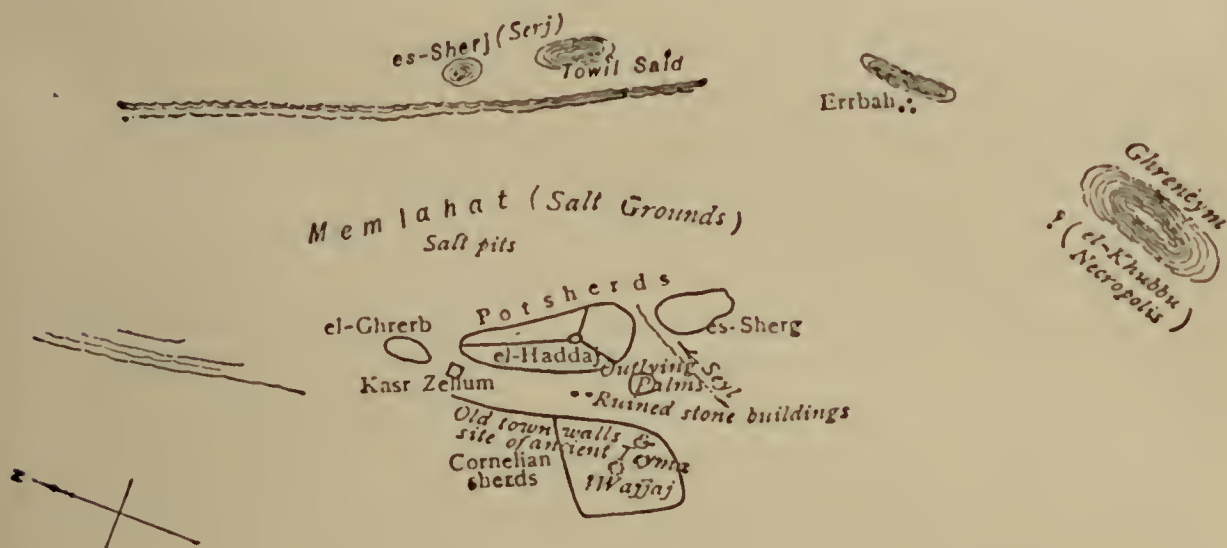 es-Sherj (Serj)
Towil Said
Errbah
Ghreneym
? (el-Khubbu
Necropolis)
Memlahat (Salt Grounds)
Salt pits
Potsherds
el-Ghrerb
es-Sherg
el-Haddaj
Kasr Zellum
Outlying
Palms
Seyl
Ruined stone buildings
Old town walls &
site of ancient Teyma
Cornelian
sherds
? Wajjaj
N